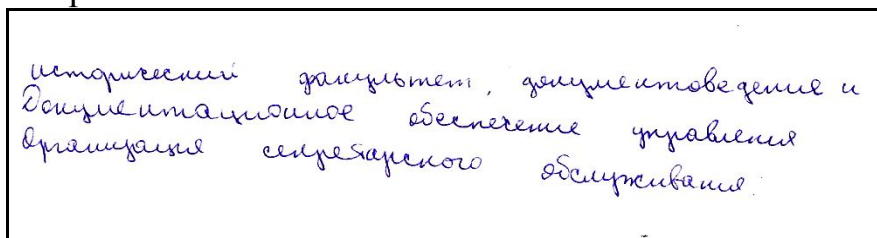 исторический факультет, документоведения и
Документационное обеспечение управления
Организация секретарского обслуживания.